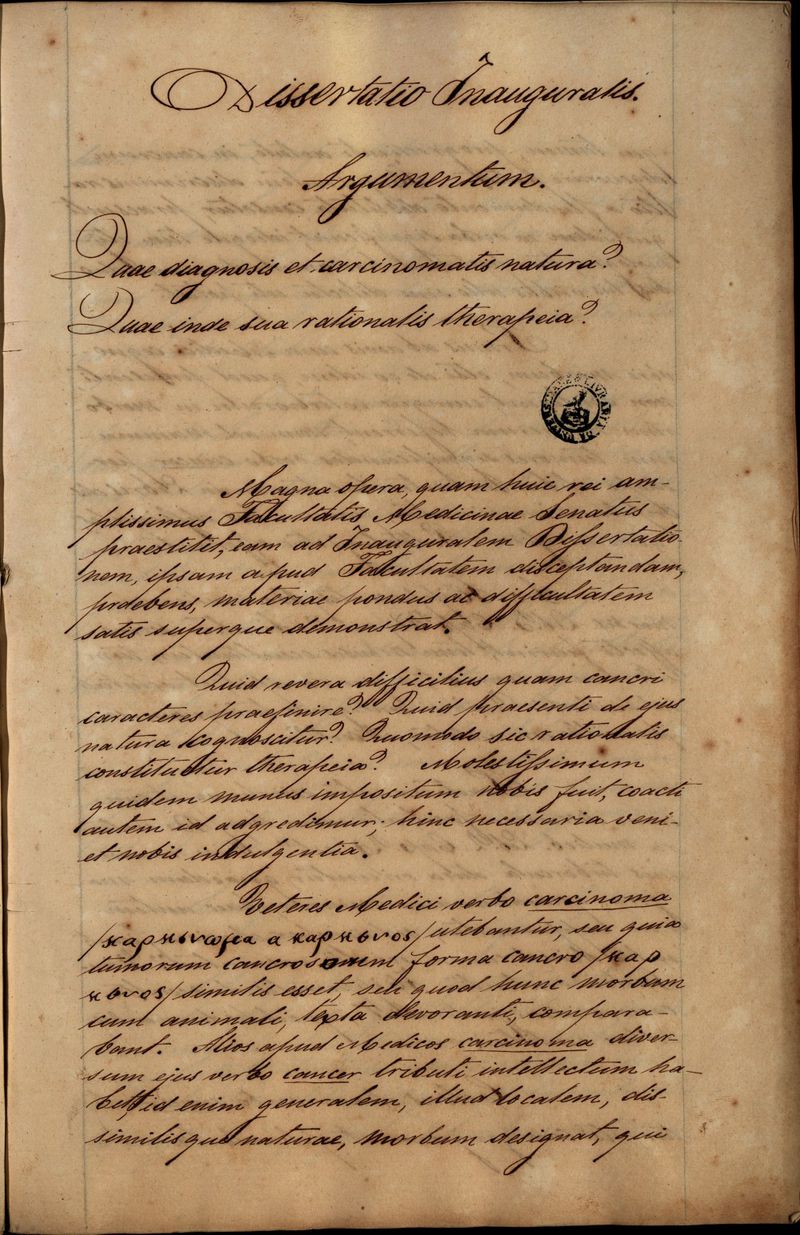 Dissertatio Inauguralis.
Argumentum.
Quae diagnosis et carcinomatis natura?
Quae inde sua rationalis therapeia?
Magna opera, quam huic rei am-
plissimus Facultatis Medicinae Senatus
praestitit, eam ad Inauguralem Dissertatio-
nem, ipsam apud Facultatem disceptandam,
praebens, materiae pondus ac difficultatem
satis superque demonstrat.
Quid revera difficilius quam cancri
caracteres praefinire? Quid praesenti de ejus
natura cognoscitur? Quomodo sic rationalis
constituetur therapeia? Molestissimum
quidem munus impositum nobis fuit, coacti
autem id adgredimur; hinc necessaria veni-
et nobis indulgentia.
Veteres Medici verbo carcinoma
/καρκινωμα a καρκινος/ utebantur, seu quia
tumorum cancrosorum forma cancro /καρ
κινος/ similis esset, seu quod hunc morbum
cum animali, texta devoranti, compara-
bant. Alios apud Medicos carcinoma diver-
sum ejus verbo cancer tributi intellectum ha-
bet; id enim generalem, illud localem, dis-
similisque naturae, morbum designat, qui